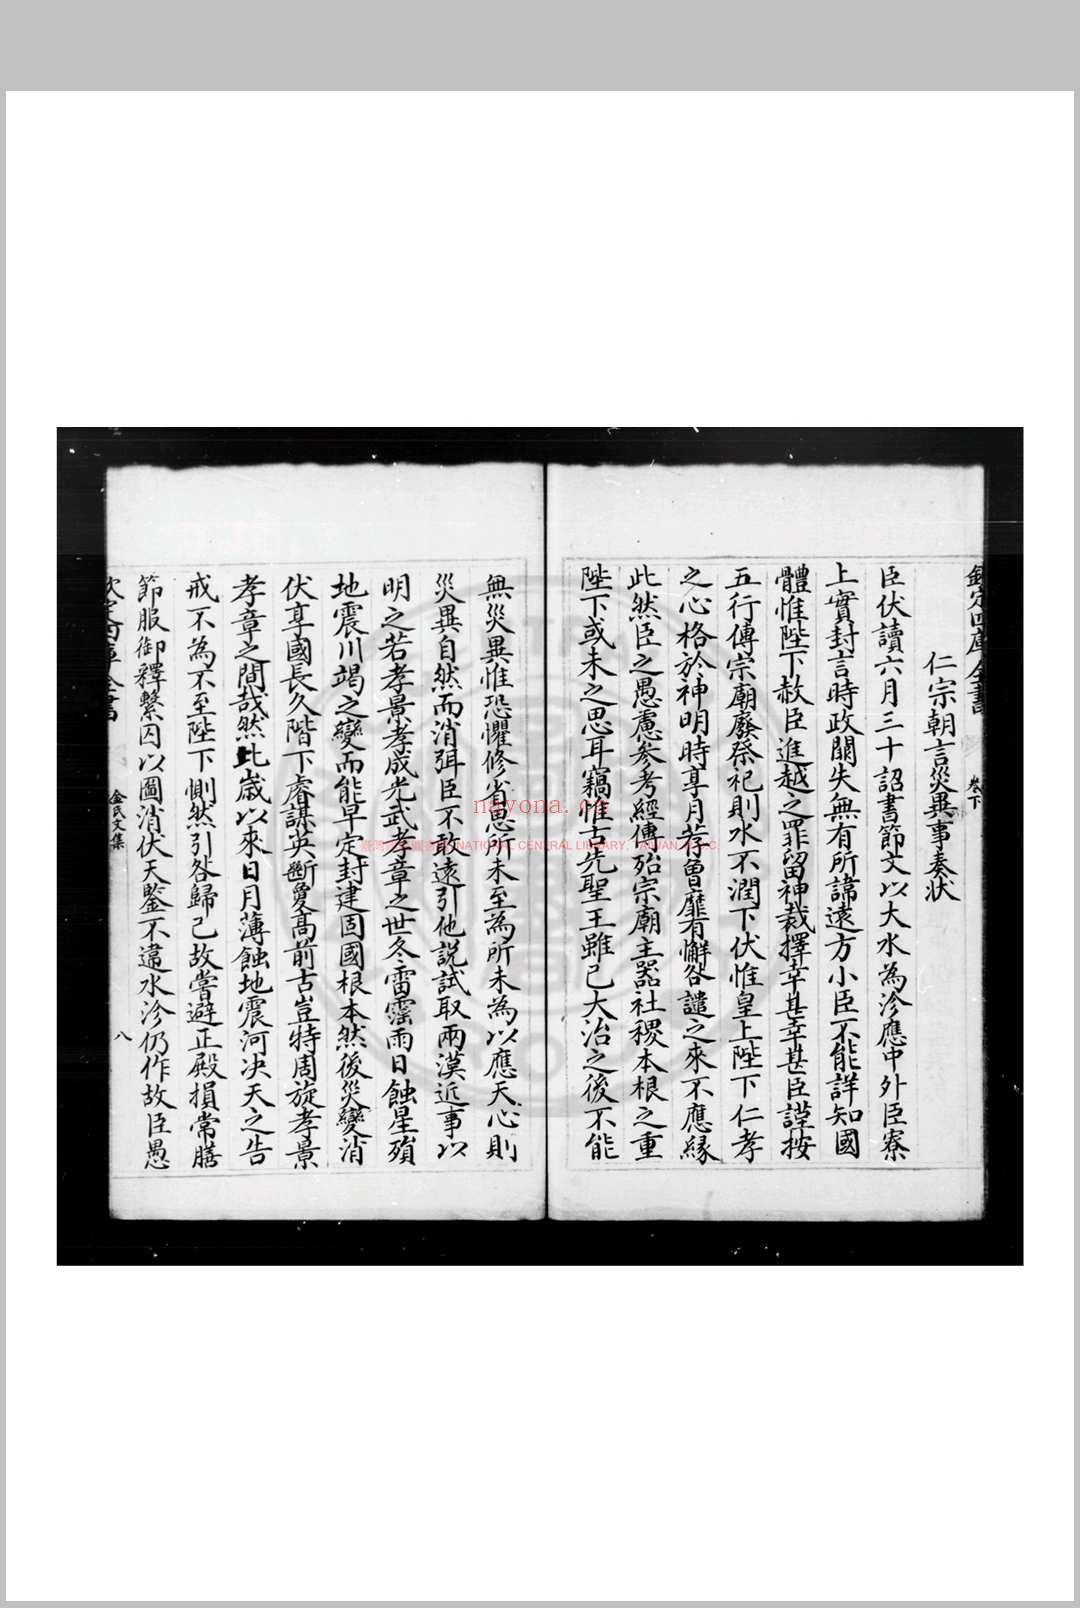 欽定四庫全書
卷下
仁宗朝言災異事奏狀
臣伏讀六月三十詔書節文以大水為沴應中外臣寮
上實封言時政闕失無有所諱遠方小臣不能詳知國
體惟陛下赦臣進越之罪留神裁擇幸甚幸甚臣謹按
五行傳宗廟廢祭祀則水不潤下伏惟皇上陛下仁孝
之心格於神明時享月荐曾靡有懈咎譴之來不應緣
此然臣之愚慮參考經傳殆宗廟主器社稷本根之重
陛下或未之思耳竊惟古先聖王雖已大治之後不能
無災異惟恐懼修省思所未至為所未為以應天心則
災異自然而消弭臣不敢遠引他説試取兩漢近事以
明之若孝景孝成光武孝章之世冬雷霪雨日蝕星殞
地震川竭之變而能早定封建固國根本然後災變消
伏享國長久階下睿謀英斷夐高前古豈特周旋孝景
孝章之間哉然比歲以來日月薄蝕地震河决天之告
戒不為不至陛下惻然引咎歸己故嘗避正殿損常膳
節服御釋繫囚以圖消伏天鑒不違水沴仍作故臣愚
欽定四庫全書
金氏文集
八
nayona.cn
臺灣國家圖書館 NATIONAL CENTRAL LIBRARY, TAIWAN, R.O.C.